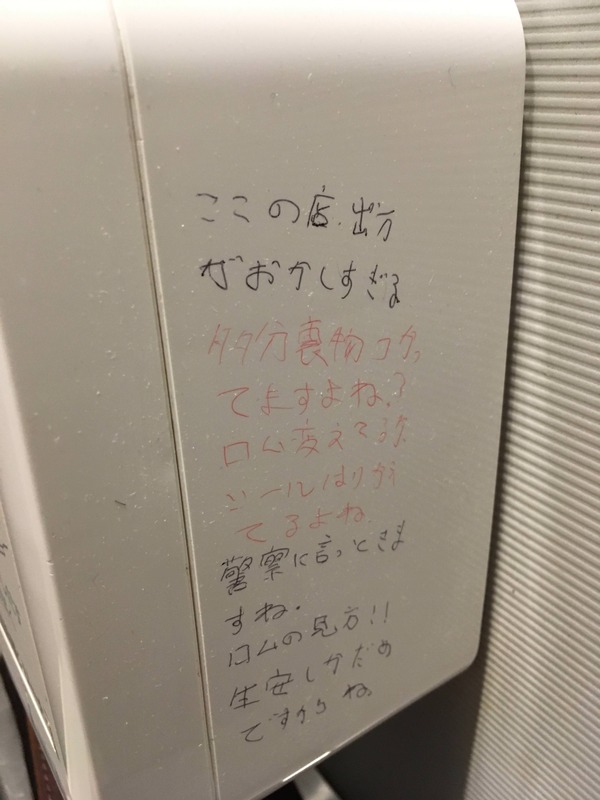 ここの店.出方
がおかしすぎる
多分裏物つかっ
てますよね?
ロム変えて
シールはりかえ
てるよね
警察に言っときま
すね.
ロムの見方!!
生安しかだめ
ですからね。